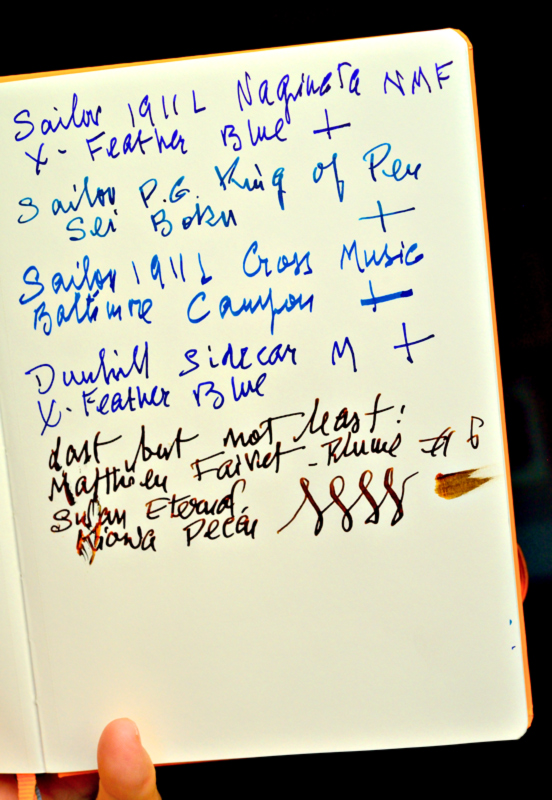 Sailor 1911 L Naginata NMF
X-Feather Blue +
Sailor P.G. King of Pen
Sei Boku +
Sailor 1911 L Cross Music
Baltimore Canyon +
Dunhill Sidecar M +
X-Feather Blue
Last but not least:
Matthieu Faivet-Plume #6
Eternal
Kiowa Pecan